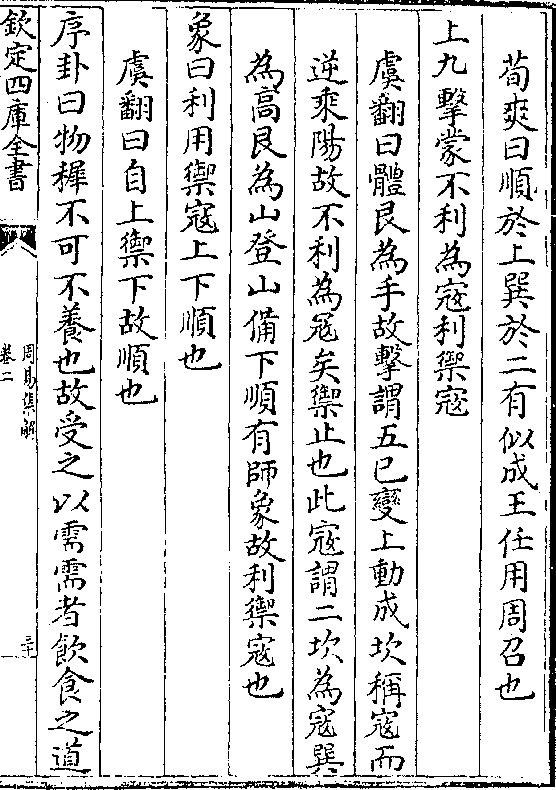 荀爽曰順於上巽於二有似成王任用周召也
上九擊蒙不利為寇利禦寇
虞翻曰體艮為手故擊謂五已變上動成坎稱寇而
逆乘陽故不利為寇矣禦止也此寇謂二坎為寇巽
為高艮為山登山備下順有師象故利禦寇也
象曰利用禦寇上下順也
虞翻曰自上禦下故順也
序卦曰物穉不可不養也故受之以需需者飲食之道
欽定四庫全書
周易集解
卷二
三十